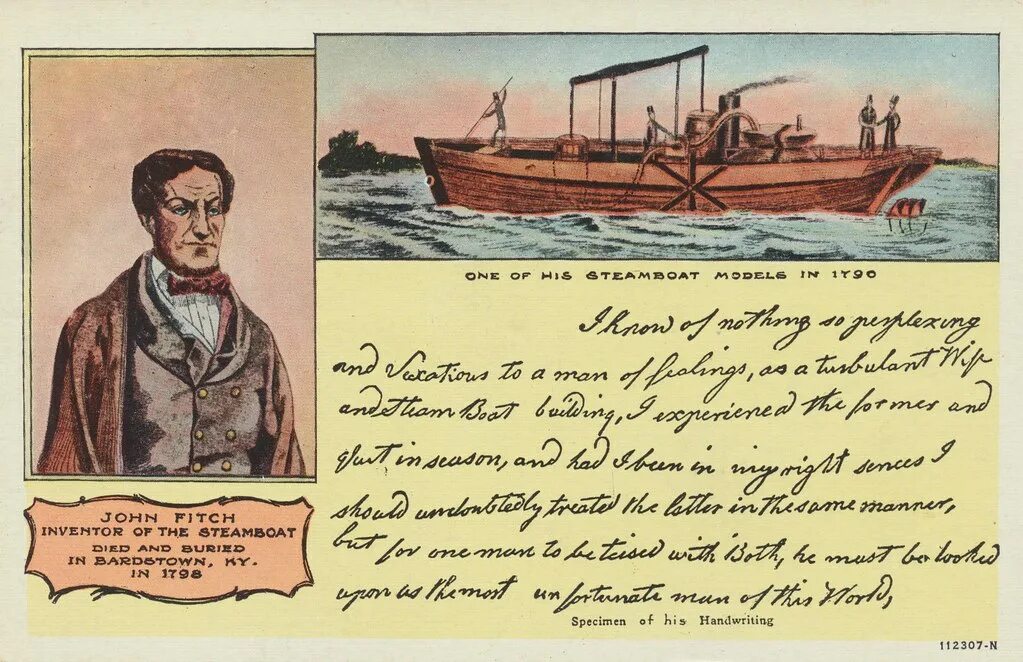 ONE OF HIS STEAMBOAT MODELS IN 1790
I know of nothing so perplexing
and Vexatious to a man of fealings, as a turbulant Wife
and Steam Boat building, I experienced the former and
quit in season, and had I been in my right sences I
should undoubtedly treated the latter in the same manner,
but for one man to be teised with Both, he must be looked
upon as the most unfortunate man of this World,
Specimen of his Handwriting
JOHN FITCH
INVENTOR OF THE STEAMBOAT
DIED AND BURIED
IN BARDSTOWN, KY.
IN 1798
112307-N